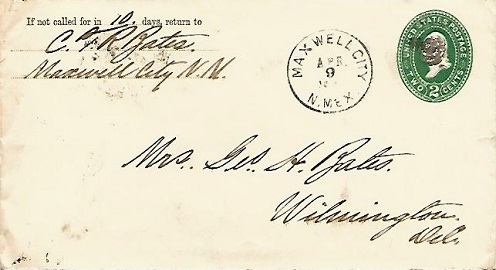 If not called for in 10 days, return to
C. F. R. Bates.
Maxwell City N. M.
MAXWELL CITY
APR
9
N. MEX.
UNITED STATES POSTAGE
TWO 2 CENTS
Mrs. Geo. H. Bates.
Wilmington.
Del.